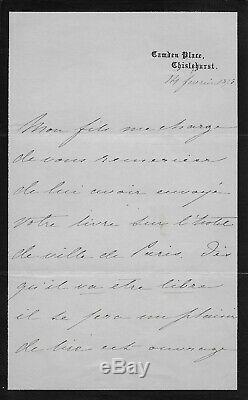 Camden Place,
Chislehurst.
24 février 1873
Mon fils me charge
de vous remercier
de lui avoir envoyé
votre livre sur l'hotel
de ville de Paris. Dès
qu'il va etre libre
il se fera un plaisir
de lire cet ouvrage
ebay